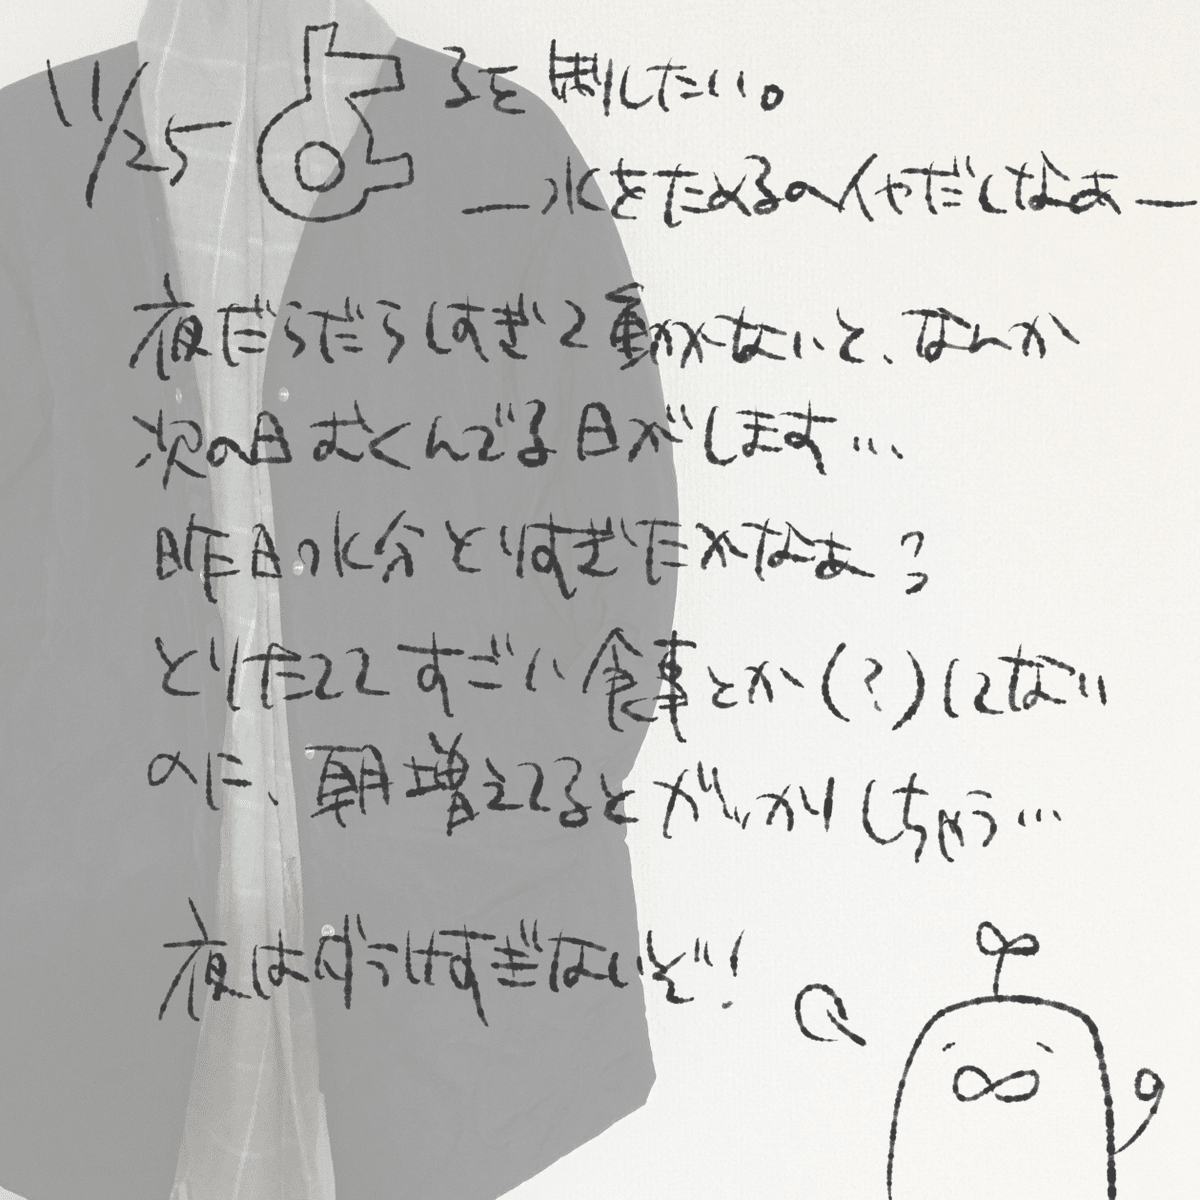 11/25 よるを制したい。
—水をためるのイヤだしなぁ—
夜だらだらしすぎて動かないと、なんか
次の日むくんでる日がします…
昨日水分とりすぎたかなぁ?
とりたててすごい食事とか(?)してない
のに、朝増えてるとがっかりしちゃう…
夜はダラけすぎないぞ!